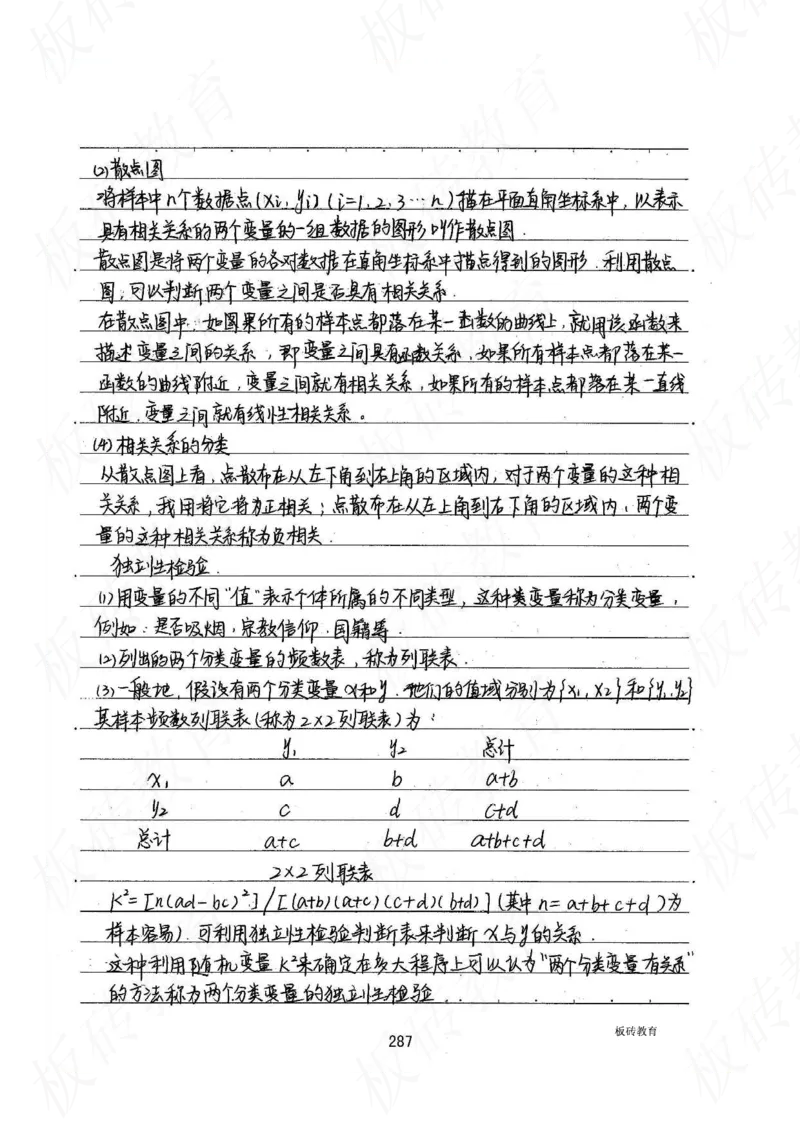 (2)散点图
将样本中n个数据点(xi,yi)(i=1,2,3…n)描在平面直角坐标系中,以表示
具有相关关系的两个变量的一组数据的图形叫作散点图.
散点图是将两个变量的各对数据在直角坐标系中描点得到的图形.利用散点
图,可以判断两个变量之间是否具有相关关系.
在散点图中,如图果所有的样本点都落在某一函数的曲线上,就用该函数来
描述变量之间的关系,即变量之间具有函数关系,如果所有样本点都落在某一
函数的曲线附近,变量之间就有相关关系,如果所有的样本点都落在某一直线
附近.变量之间就有线性相关关系。
(4)相关关系的分类
从散点图上看,点散布在从左下角到右上角的区域内,对于两个变量的这种相
关关系,我用将它将为正相关;点散布在从左上角到右下角的区域内,两个变
量的这种相关关系称为负相关.
独立性检验.
(1)用变量的不同"值"表示个体所属的不同类型,这种类变量称为分类变量,
例如:是否吸烟,宗教信仰.国籍等.
(2)列出的两个分类变量的频数表,称为列联表.
(3)一般地,假设有两个分类变量x和y.他们的值域分别为{x₁,x₂}和{y₁,y₂}
其样本频数列联表(称为2×2列联表)为:
y₁ y₂ 总计
x₁ a b a+b
y₂ c d c+d
总计 a+c b+d a+b+c+d
2×2列联表
K²=[n(ad-bc)²]/[(a+b)(a+c)(c+d)(b+d)](其中n=a+b+c+d)为
样本容易).可利用独立性检验判断表来判断x与y的关系.
这种利用随机变量K²来确定在多大程序上可以认为"两个分类变量有关系"
的方法称为两个分类变量的独立性检验.
287
板砖教育